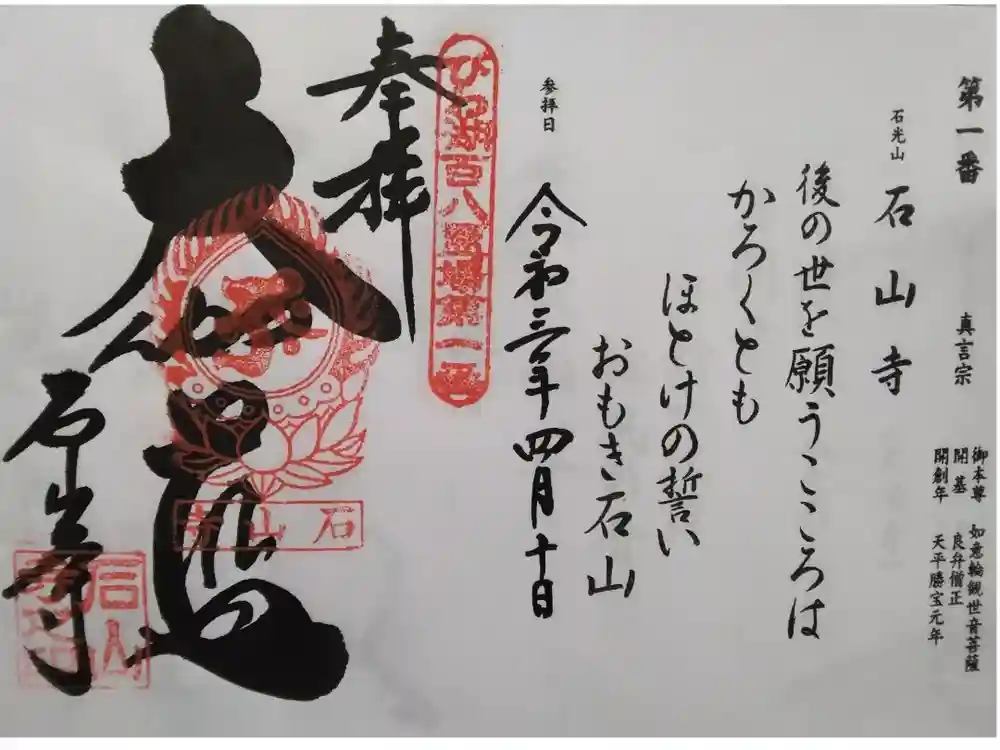 第一番
真言宗
御本尊 如意輪観世音菩薩
開基 良弁僧正
開創年 天平勝宝元年
石光山 石山寺
後の世を願うこころは
かろくとも
ほとけの誓い
おもき石山
参拝日
令和三年四月十日
びわ湖百八霊場第一番
奉拝
大
石山寺
石山寺